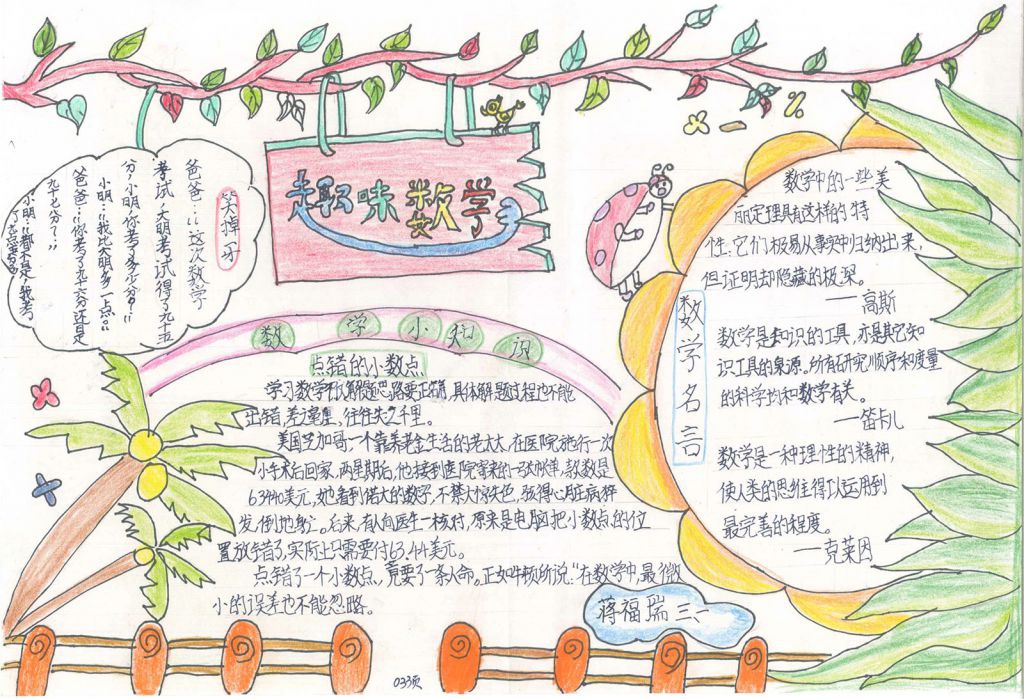 趣味数学
笑掉牙
爸爸：“这次数学
考试，大明考试得了九十五
分，小明，你考了多少分？”
小明：“我比大明多一点。”
爸爸：“你考了九十六分还是
九十七分？”
小明：“都不是，我考
了
数学小知识
点错的小数点
学习数学不仅解题思路要正确，具体解题过程也不能
出错，差之毫厘，往往失之千里。
美国芝加哥一个靠养老金生活的老太太，在医院施行一次
小手术后回家，两星期后，他接到医院寄来的一张帐单，款数是
63440美元，她看到偌大的数字，不禁大惊失色，骇得心脏病猝
发，倒地身亡。后来，有人向医生一核对，原来是电脑把小数点的位
置放错了，实际上只需要付63.44美元。
点错了一个小数点，竟要了一条人命。正如牛顿所说：“在数学中，最微
小的误差也不能忽略。
数学名言
数学中的一些美
丽定理具有这样的特
性，它们极易从事实中归纳出来，
但证明却隐藏的极深。
——高斯
数学是知识的工具，亦是其它知
识工具的泉源。所有研究顺序和度量
的科学均和数学有关。
——笛卡儿
数学是一种理性的精神，
使人类的思维得以运用到
最完善的程度。
——克莱因
蒋福瑞 三、
033页